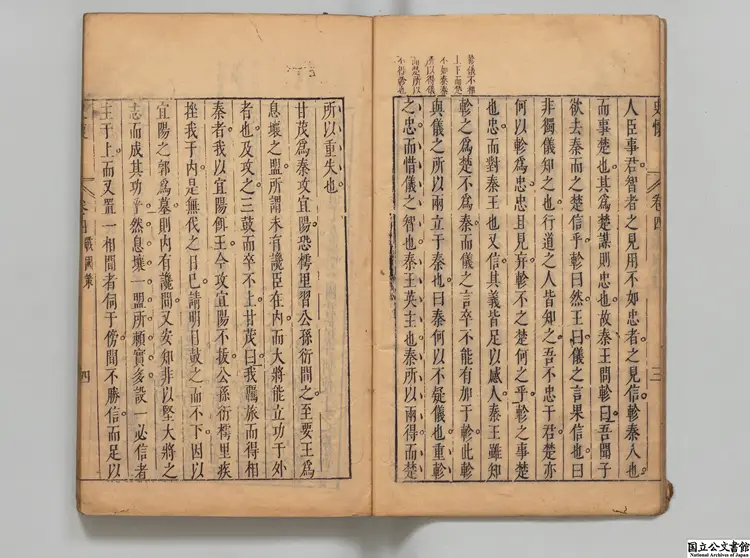 軫儀不相
上下而楚
不如秦秦
所以得儀
而楚所以
不得軫也
史懷
卷四
三
人臣事君智者之見用不如忠者之見信軫秦人也
而事楚也其爲楚謀則忠也故秦王問軫曰吾聞子
欲去秦而之楚信乎軫曰然王曰儀之言果信也曰
非獨儀知之也行道之人皆知之吾不忠于君楚亦
何以軫爲忠忠且見弃軫不之楚何之乎軫之事楚
也忠而對秦王也又信其義皆足以感人秦王雖知
軫之爲楚不爲秦而儀之言卒不能有加于軫此軫
與儀之所以兩立于秦也曰秦何以不疑儀也重軫
之忠而惜儀之智也秦王英主也秦所以兩得而楚
所以重失也
甘茂爲秦攻宜陽恐樗里習公孫衍間之至要王爲
息壤之盟所謂未有讒臣在内而大將能立功于外
者也及攻之三鼓而卒不上甘茂曰我羈旅而得相
秦者我以宜陽餌王今攻宜陽不拔公孫衍樗里疾
挫我于内是無伐之日已請明日鼓之而不下因以
宜陽之郭爲墓則内有讒間又安知非以堅大將之
志而成其功乎然息壤一盟所賴實多設一必信者
主于上而又置一相間者伺于傍間不勝信而足以
卷四
戰國策
四
国立公文書館
National Archives of Japan